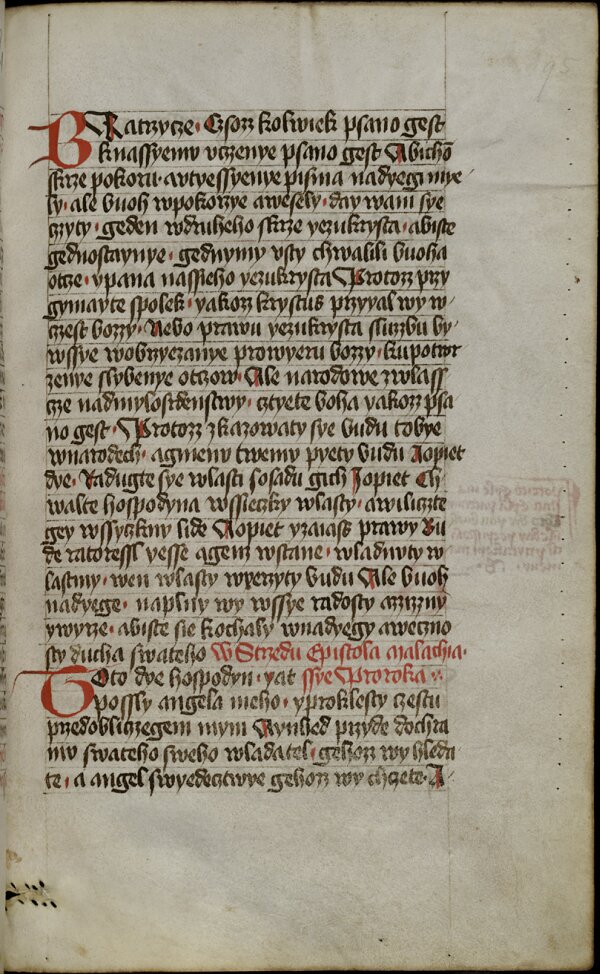 BRatrzycze · Czozz kolwiek psano gest
knassyemu vczenye psano gest Abichō
skrze pokoru · avtyessyenye pisma nadyegi mye
ly · ale buoh wpokorzye awesely · day wam sye
czyty · geden wdruheho skrze yezukrysta · abiste
gednostaynye · gednymy vsty chwalili buoha
otcze · ypana nassieho yezukrysta Protozz przy
gymayte spolek · yakozz krystus przyyal wy w
czest bozzy · Nebo prawu yezukrysta sluzbu by
wssye wobrzyezanye prowyeru bozzy · kupotwr
zenye slybenye otczow · Ale narodowe zwlass
cze nadmylosrdenstwy · cztyete boha yakozz psa
no gest · Protozz zkazowaty sye budu tobye
wnarodech · agmenu twemu pyety budu Aopiet
dye · Radugte sye wlasti sosadu gich Aopiet Ch
walte hospodyna wssieczky wlasty · awiliczte
gey wssyczkny lide Aopiet yzaiass prawy Bu
de ratoressl yesse agenz wstane · wladnuty w
lastmy · wen wlasty wyerzyty budu Ale buoh
nadyege · naplny wy wssye radosty azzizny
ywyrze · abiste sie kochaly wnadyegy aweczno
sty ducha swateho W Strzedu Epistola malachia ·
TOto dye hospodyn · yat ssye Proroka ·
possly angela meho · yproklesty czestu
przedobliczegem mym Aynhed przyde dochra
mu swateho sweho wladatel · gehozz wy hleda
te · a angel swyedecztwye gehozz wy chcete · A